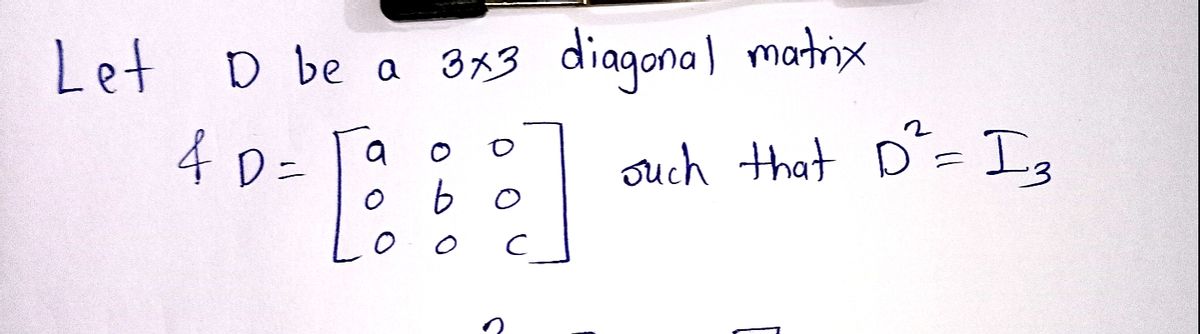 Let D be a 3×3 diagonal matrix
& D = [a 0 0
0 b 0
0 0 c] such that D² = I₃